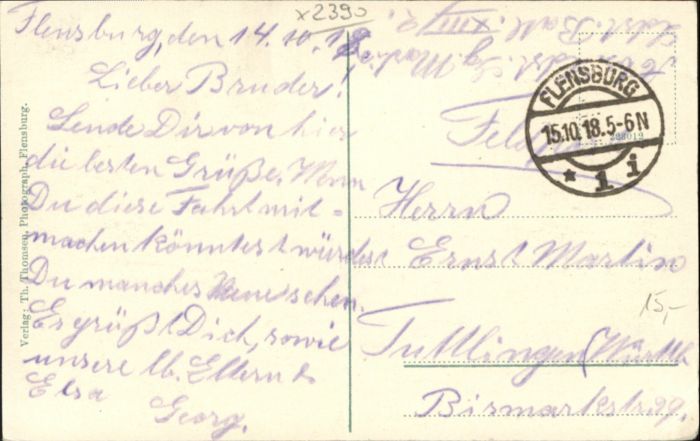 x2390
Flensburg, den 14.10.18
Lieber Bruder!
Sende Dir von hier
die besten Grüße. Wenn
Du diese Fahrt mit-
machen könntest würdest
Du manches Neue sehen.
Es grüßt Dich, sowie
unsere lb. Eltern &
Elsa
Georg.
Verlag: Th. Thomsen, Photograph, Flensburg.
Ldst. Batl. XIII/
FLENSBURG
15.10.18.5-6N
* 1 i
Herrn
Ernst Martin
15,-
Tuttlingen (Württb
Bismarckstr.